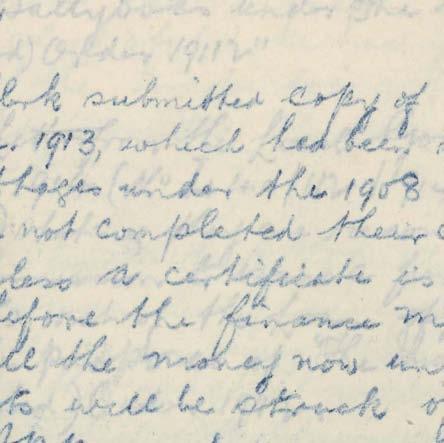 under the
Order 1911"
submitted copy of
1913, which had been
under the 1908
not completed their
a certificate is
before the finance
the money now
will be struck